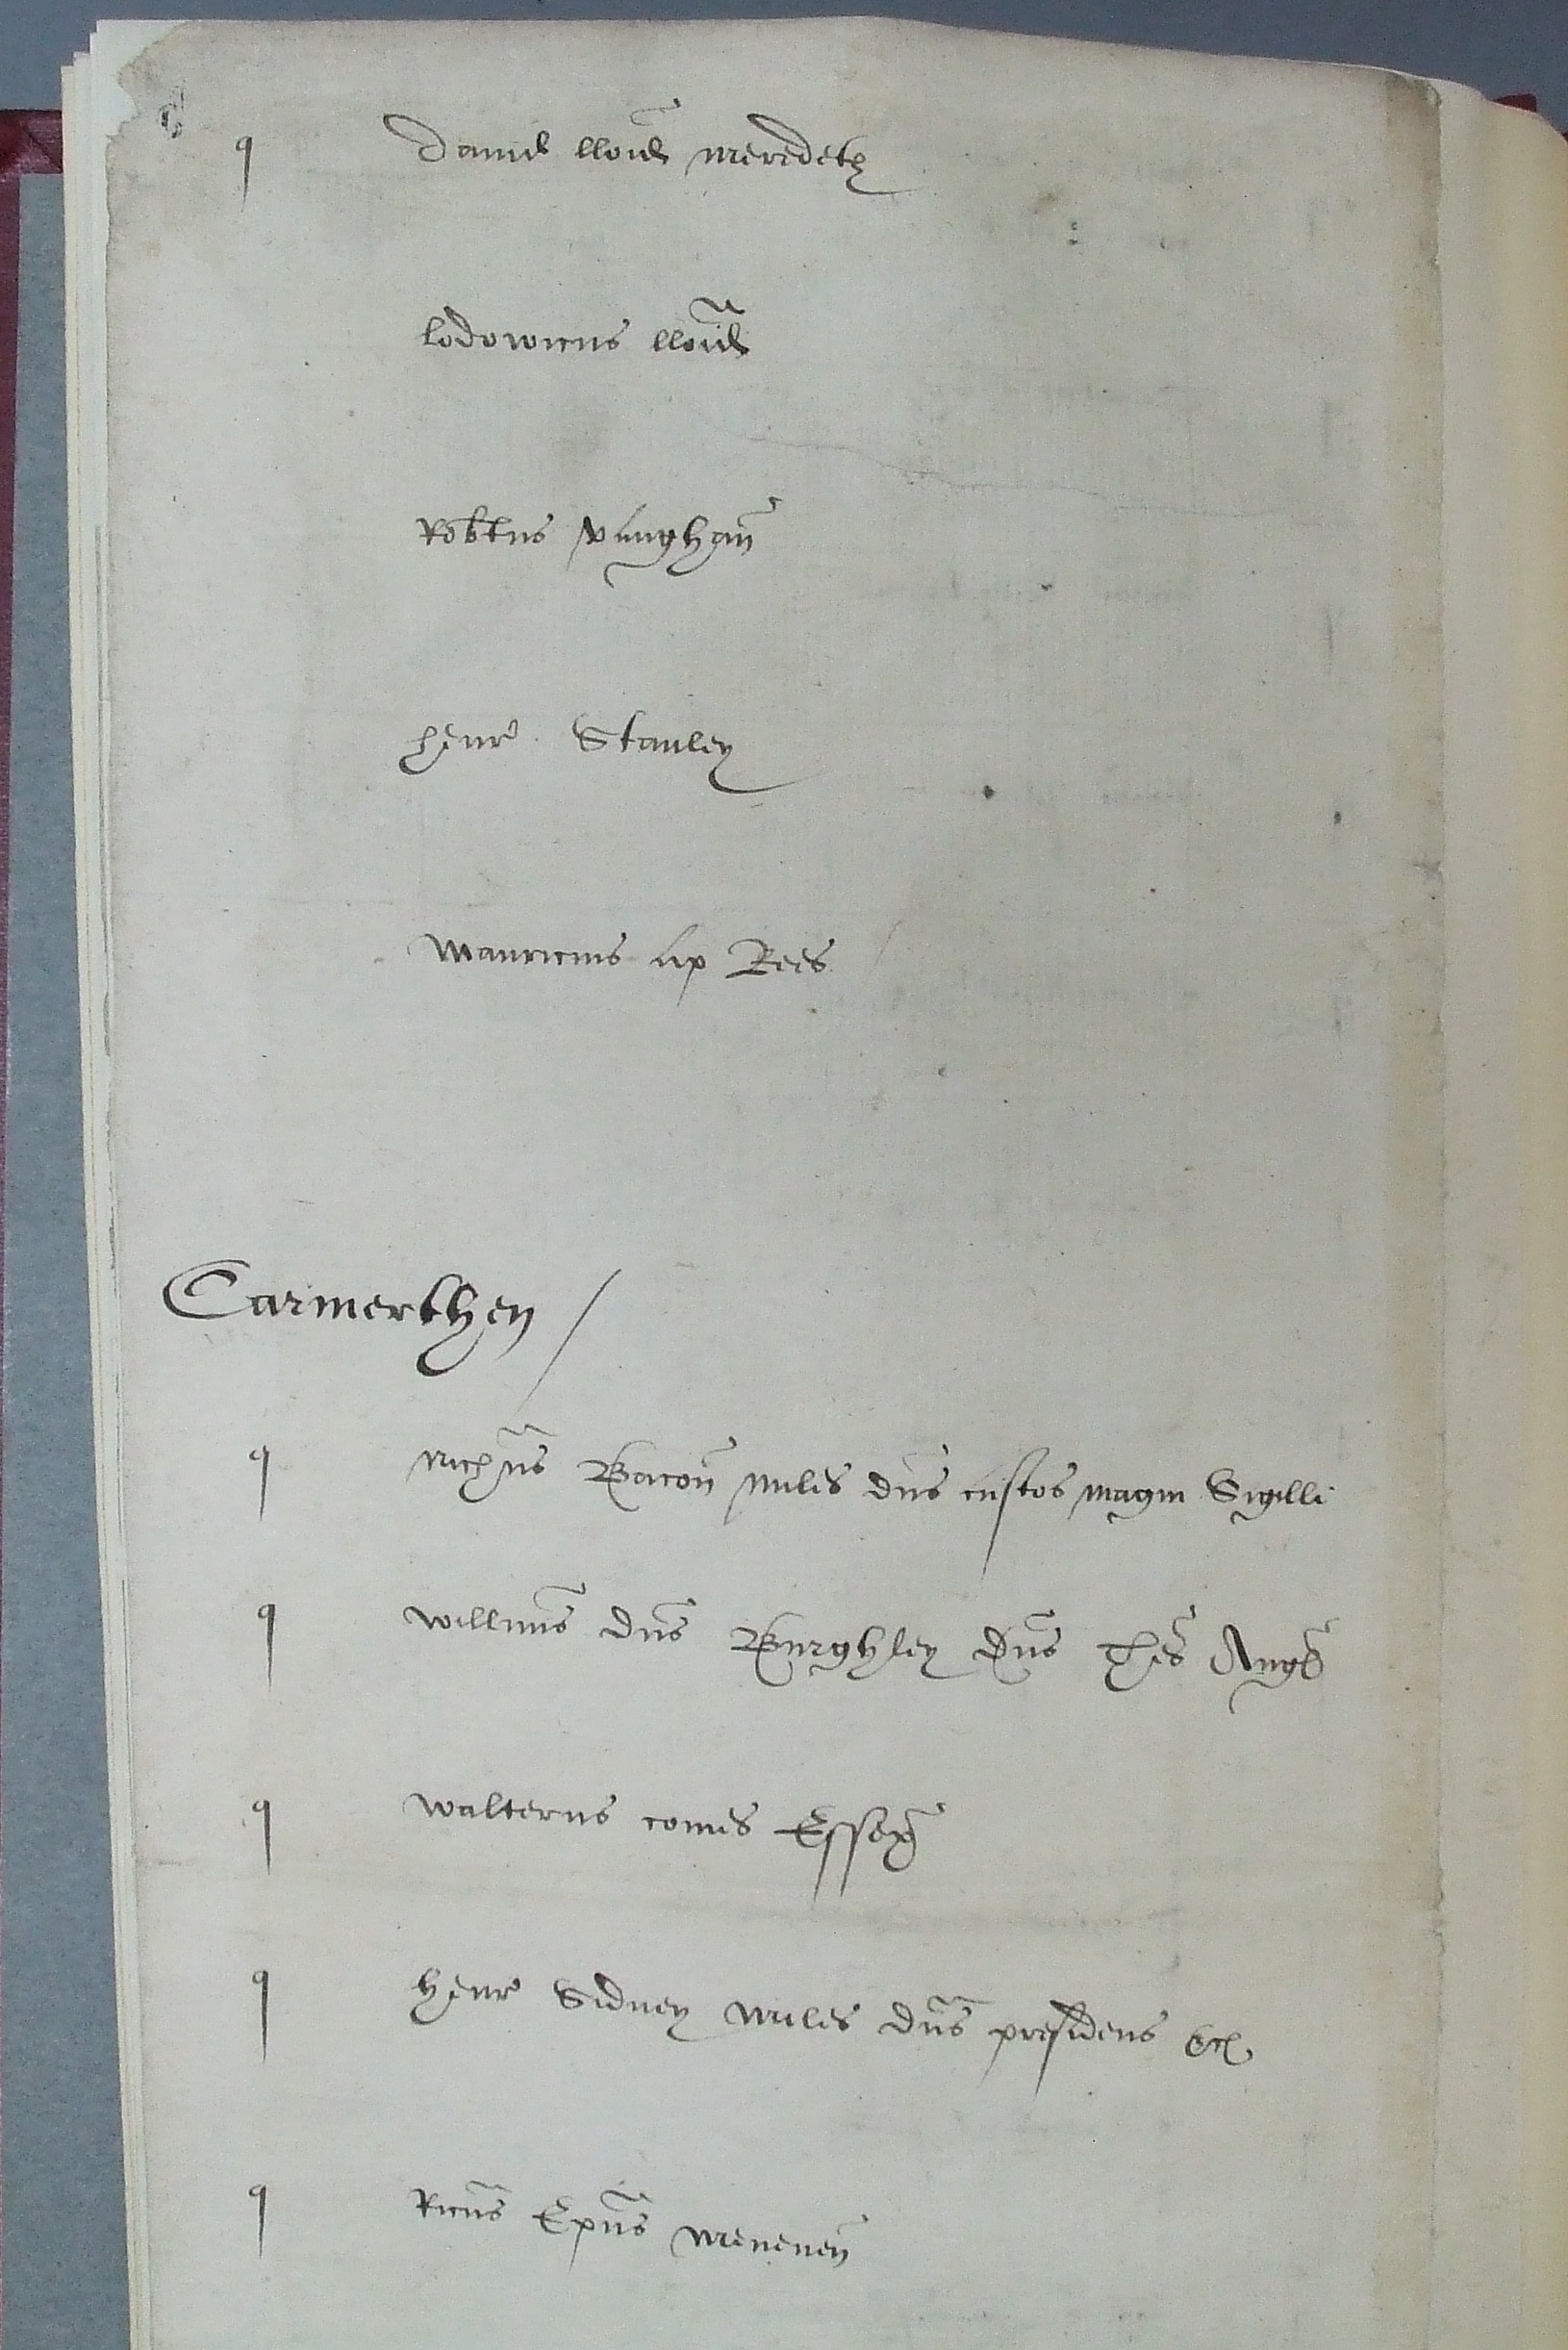 q David lloid meredeth
lodowicus lloid
Robtus vaughan
henr Stanley
Mauricius ap Rees
Carmerthen /
q Nichus Bacon miles dns custos magni Sigilli
q willmus dns Burghley dns thes Angl
q walterus comes Essex
q henr Sidney miles dns presidens &c
q Ricus Epus meneven